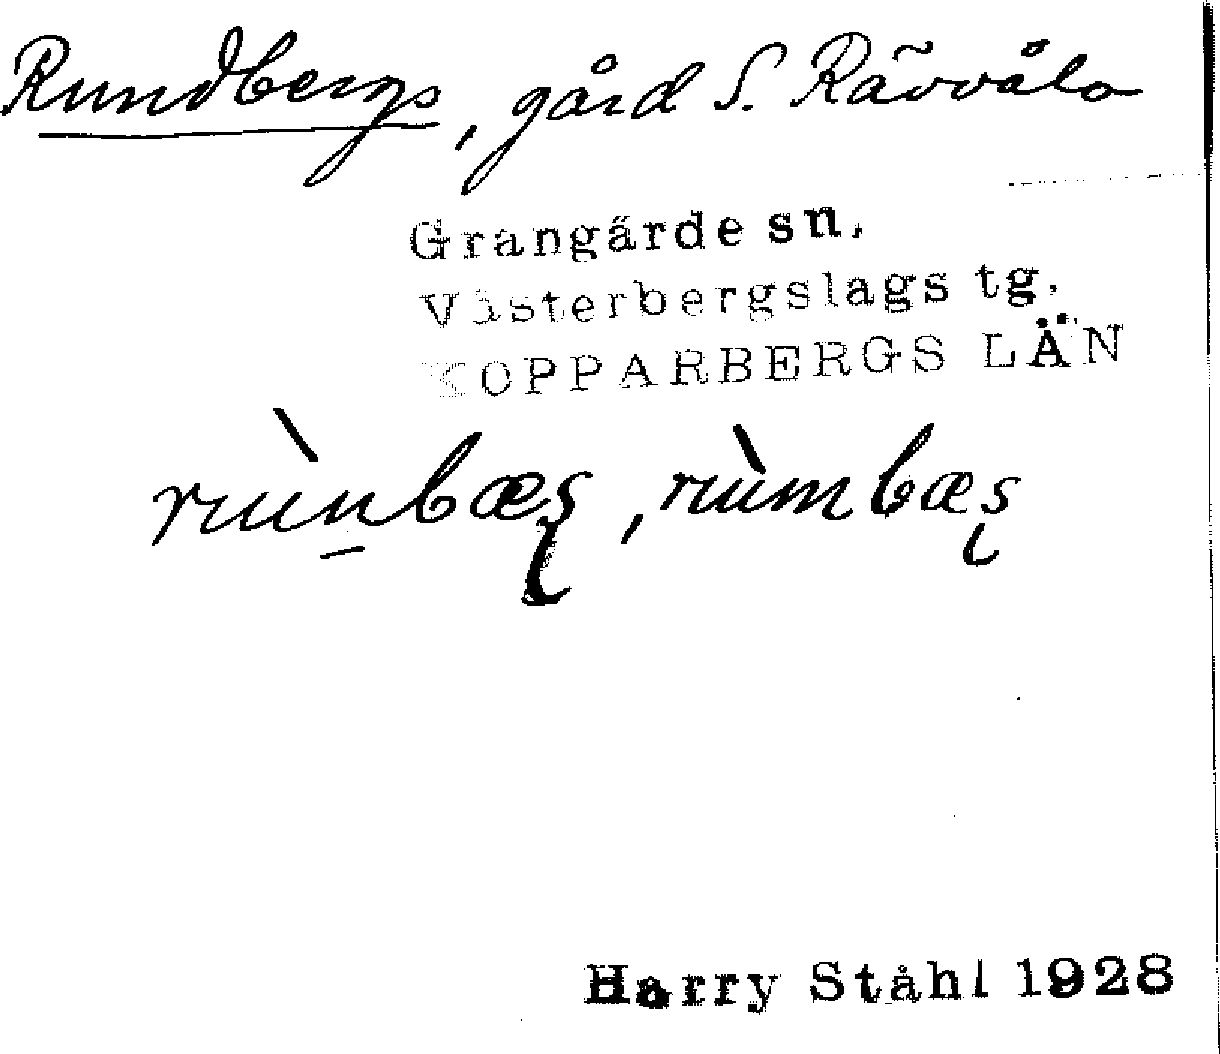 Rundbergs, gård S. Rävvåla
Grangärde sn.
Västerbergslags tg.
KOPPARBERGS LÄN
rùn̠bæʂ, rùmbæʂ
Harry Ståhl 1928